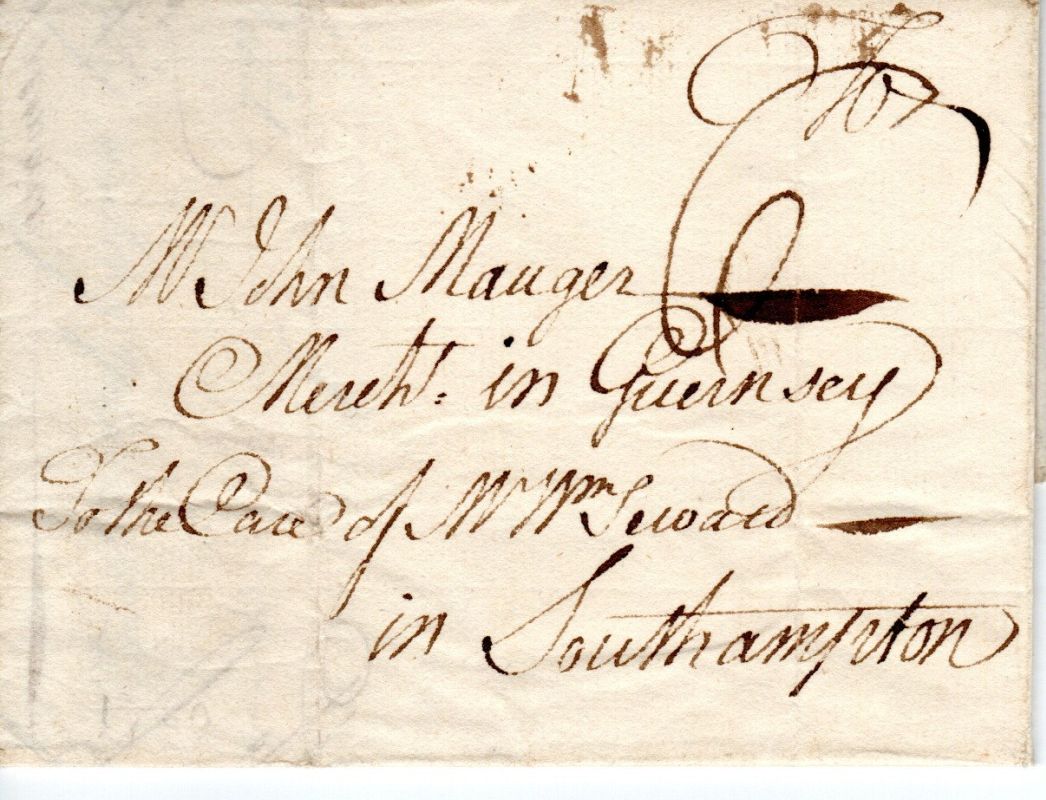 To
Mr John Mauger
Mercht. in Guernsey
To the Care of Mr Wm Seward
in Southampton